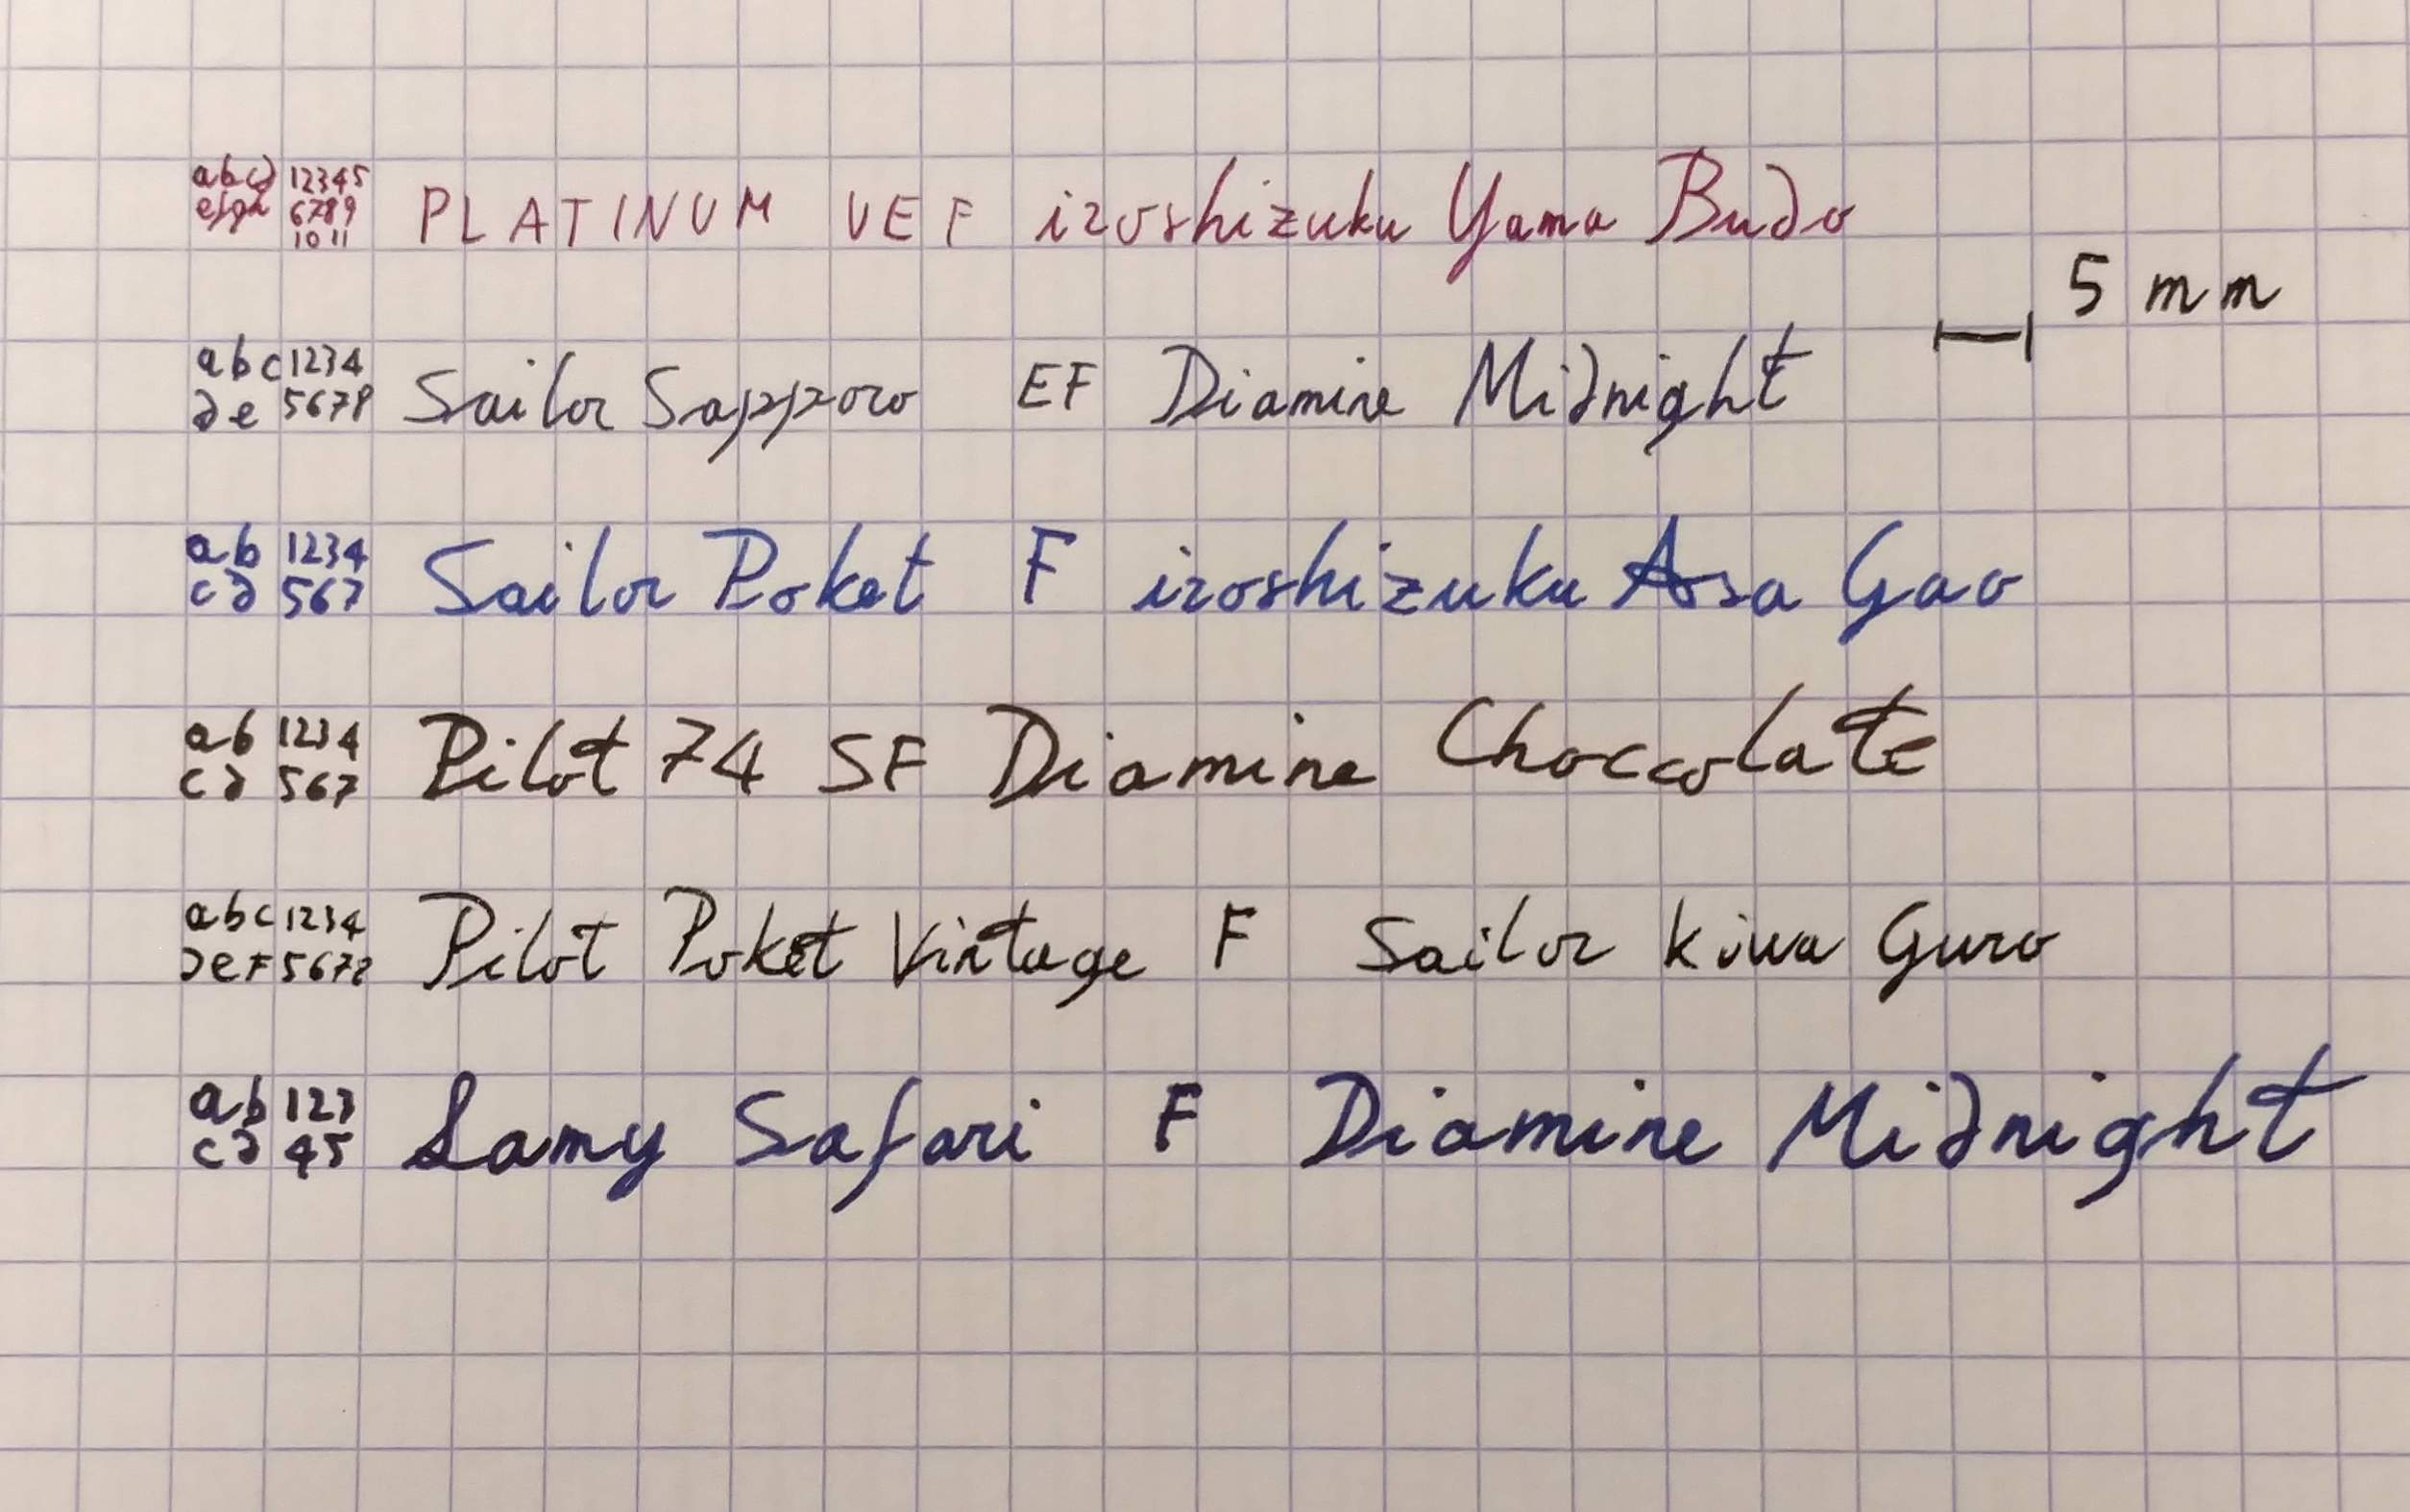 abcd 12345
efgh 6789
10 11
PLATINUM UEF iroshizuku Yama Budo
5 mm
abc 1234
de 5678
Sailor Sapporo EF Diamine Midnight
ab 1234
cd 567
Sailor Poket F iroshizuku Asa Gao
ab 1234
cd 567
Pilot 74 SF Diamine Choccolate
abc 1234
deF 5678
Pilot Poket Vintage F Sailor Kiwa Guro
ab 123
cd 45
Lamy Safari F Diamine Midnight